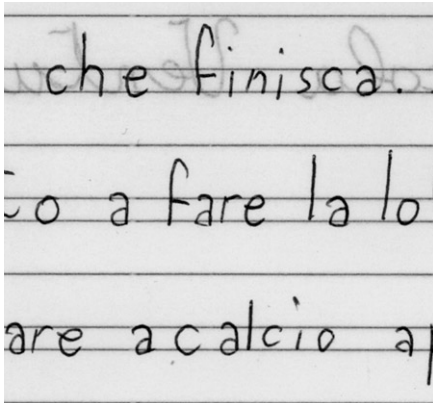 che finisca.
o a fare la lo
are a calcio a